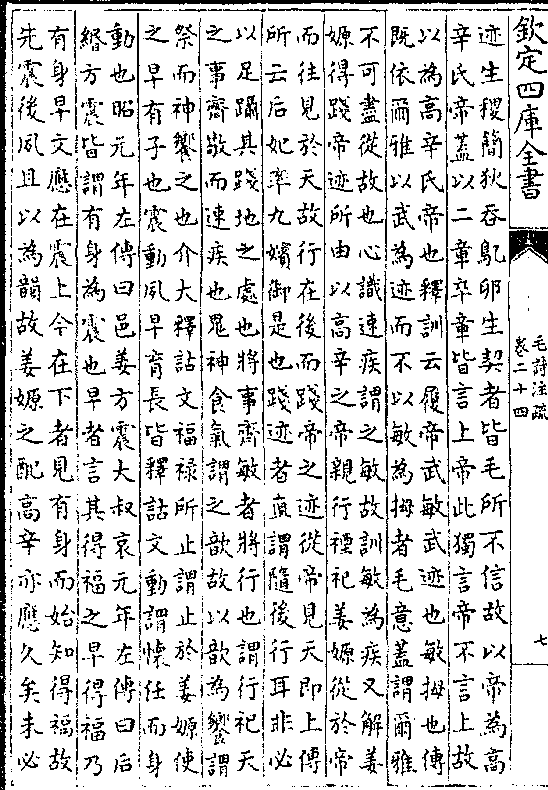 欽定四庫全書
毛詩注疏
卷二十四
七
迹生稷簡狄吞鳦卵生契者皆毛所不信故以帝為高
辛氏帝蓋以二章卒章皆言上帝此獨言帝不言上故
以為高辛氏帝也釋訓云履帝武敏武迹也敏拇也傳
既依爾雅以武為迹而不以敏為拇者毛意蓋謂爾雅
不可盡從故也心識速疾謂之敏故訓敏為疾又解姜
嫄得踐帝迹所由以高辛之帝親行禋祀姜嫄從於帝
而往見於天故行在後而踐帝之迹從帝見天即上傳
所云后妃率九嬪御是也踐迹者直謂隨後行耳非必
以足躡其踐地之處也將事齊敏者將行也謂行祀天
之事齊敬而速疾也鬼神食氣謂之歆故以歆為饗謂
祭而神饗之也介大釋詁文福禄所止謂止於姜嫄使
之早有子也震動夙早育長皆釋詁文動謂懷任而身
動也昭元年左傳曰邑姜方震大叔哀元年左傳曰后
緡方震皆謂有身為震也早者言其得福之早得福乃
有身早文應在震上今在下者見有身而始知得福故
先震後夙且以為韻故姜嫄之配高辛亦應久矣未必